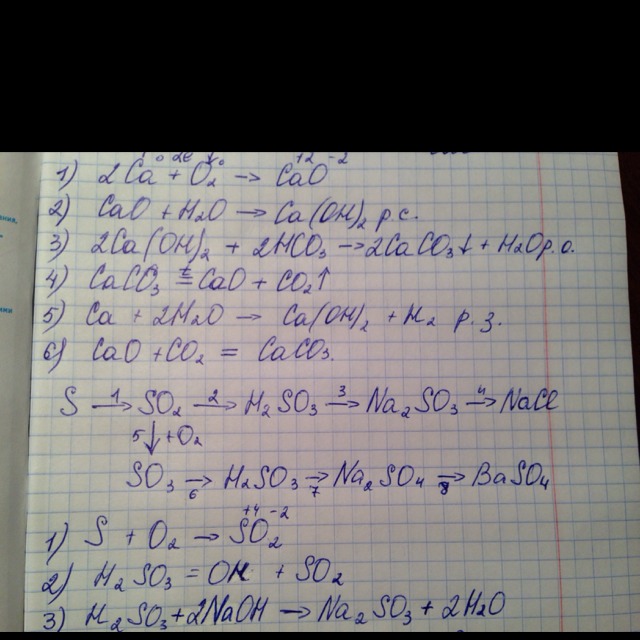 1) 2Ca + O₂ → CaO
2) CaO + H₂O → Ca(OH)₂ р.с.
3) 2Ca(OH)₂ + 2HCO₃ → 2CaCO₃↓ + H₂O р.о.
4) CaCO₃ t= CaO + CO₂↑
5) Ca + 2H₂O → Ca(OH)₂ + H₂ р.з.
6) CaO + CO₂ = CaCO₃.
S 1→ SO₂ 2→ H₂SO₃ 3→ Na₂SO₃ 4→ NaCl
5↓ +O₂
SO₃ →6 H₂SO₃ →7 Na₂SO₄ →8 BaSO₄
+4 -2
1) S + O₂ → SO₂
2) H₂SO₃ = OH + SO₂
3) H₂SO₃ + 2NaOH → Na₂SO₃ + 2H₂O